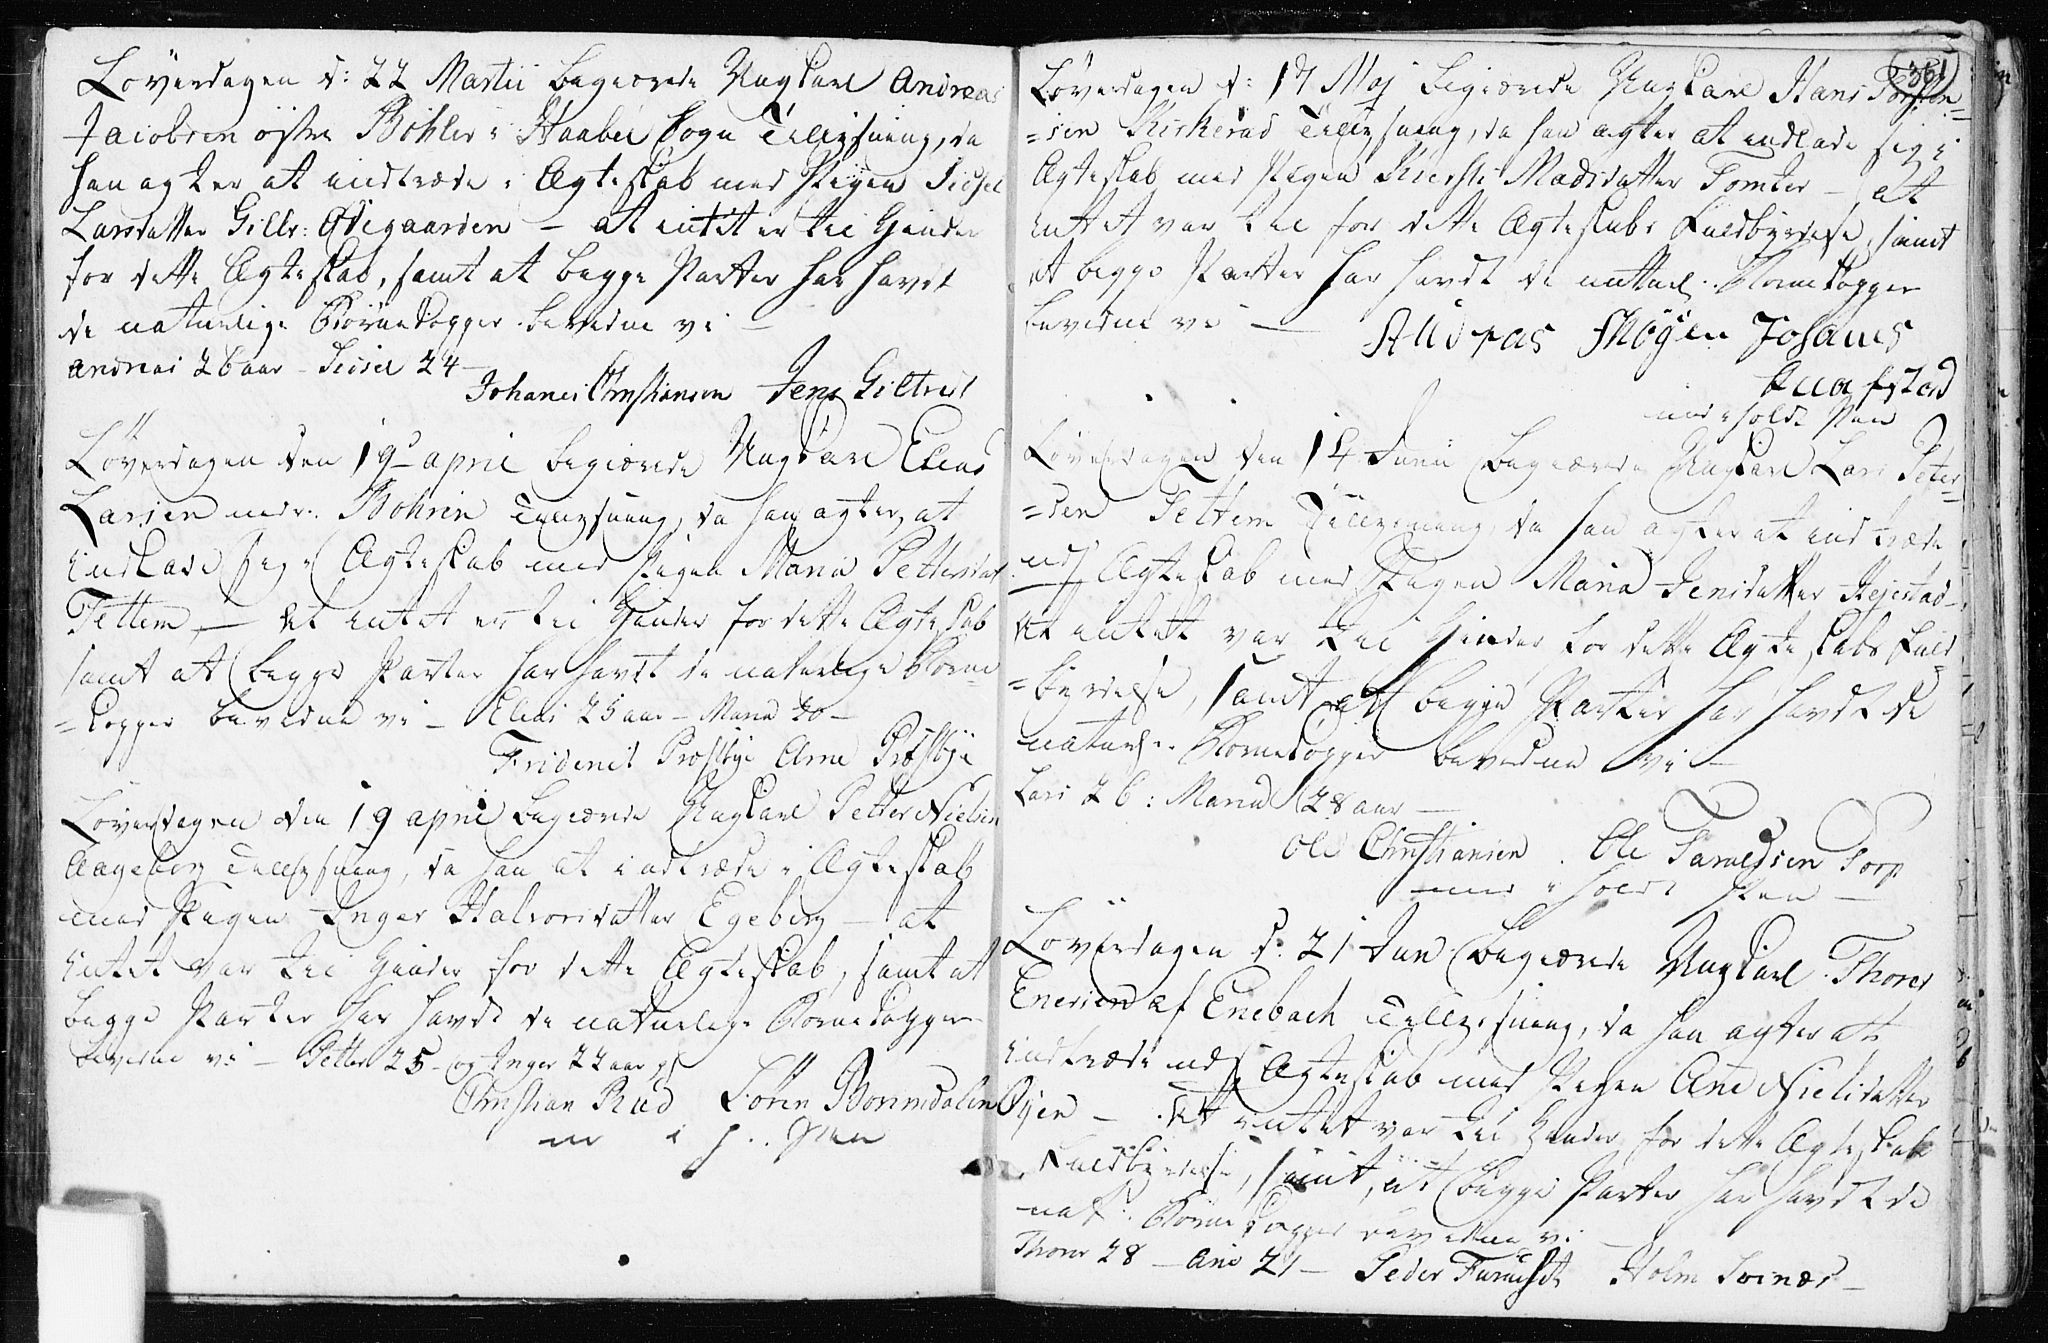 Löverdagen d: 22 Martii begiærede Ungkarl Andreas
Jacobsen östre Böhler i Haabøl Sogn Tillysning, da
han agter at indtræde i Ægteskab med Pigen Sidsel
Larsdatter Gillr: Ødegaarden – at intet er til Hinder
for dette Ægteskab, samt at begge Parter har havdt
de naturlige Børnekopper bevidne vi –
Andreas 26 aar – Sidsel 24 –
Johanes Christiansen Jens Giltvedt
Löverdagen den 19de april begiærede Ungkarl Elias
Larsen nedr: Bohren Tillysning, da han agter at
indlade sig i Ægteskab med Pigen Maria Pettersdat
Tettem, – at intet er til Hinder for dette Ægteskab
samt at begge Parter har havdt de naturlige Børne
=kopper bevidne vi – Elias 25 aar – Maria 20 –
Friderich Præstbye Arne Præstbye
Löverdagen den 19 april begiærede Ungkarl Petter Nielsen
Aageberg Tillysning, da han at indtræde i Ægteskab
med Pigen Inger Halvorsdatter Egeberg – at
intet var til Hinder for dette Ægteskab, samt at
begge Parter har havdt de naturlige Børnekopper
bevidne vi – Petter 25 – og Inger 22 aar gl
Christian Rud Sören Bonndalen
m i h.. Pen
361
Löverdagen d: 17 Maj begiærede Ungkarl Hans Torsten=
=sen Kirkerud Tillysning, da han agter at indlade sig i
Ægteskab med Pigen Kiersti Madsdatter Tomter – at
intet var til for dette Ægteskabs Fuldbyrdelse, samt
at begge Parter har havdt de naturl. Børnekopper
bevidne vi – Andreas Skøyen Johanes
med i holdt Pen
Löverdagen den 14 Junii begiærede Ungkarl Lars Peter=
=sen Tettem Tillysning da han agter at indtræde
udj Ægteskab med Pigen Maria Jensdatter Stejestad –
at intet var til Hinder for dette Ægteskabs Fuld
=byrdelse, samt at begge Parter har havdt de
naturl:. Børnekopper bevidne vi –
Lars 26: Maria 28 aar –
Ole Christiansen . Ole Taraldsen Torp
med i holdt Pen –
Löverdagen d: 21 Jun: begiærede Ungkarl Thorer
Enersen af Enebach Tillysning, da han agter at
indtræde udj Ægteskab med Pigen Ane Nielsdatter
Öjen – at intet var til Hinder for dette Ægteskab
Fuldbyrdelse, samt, at begge Parter har havdt de
nat: Børnekopper bevidne vi
Thorer 28 – Ane 21 – Peder Furuset Holm Svinær –